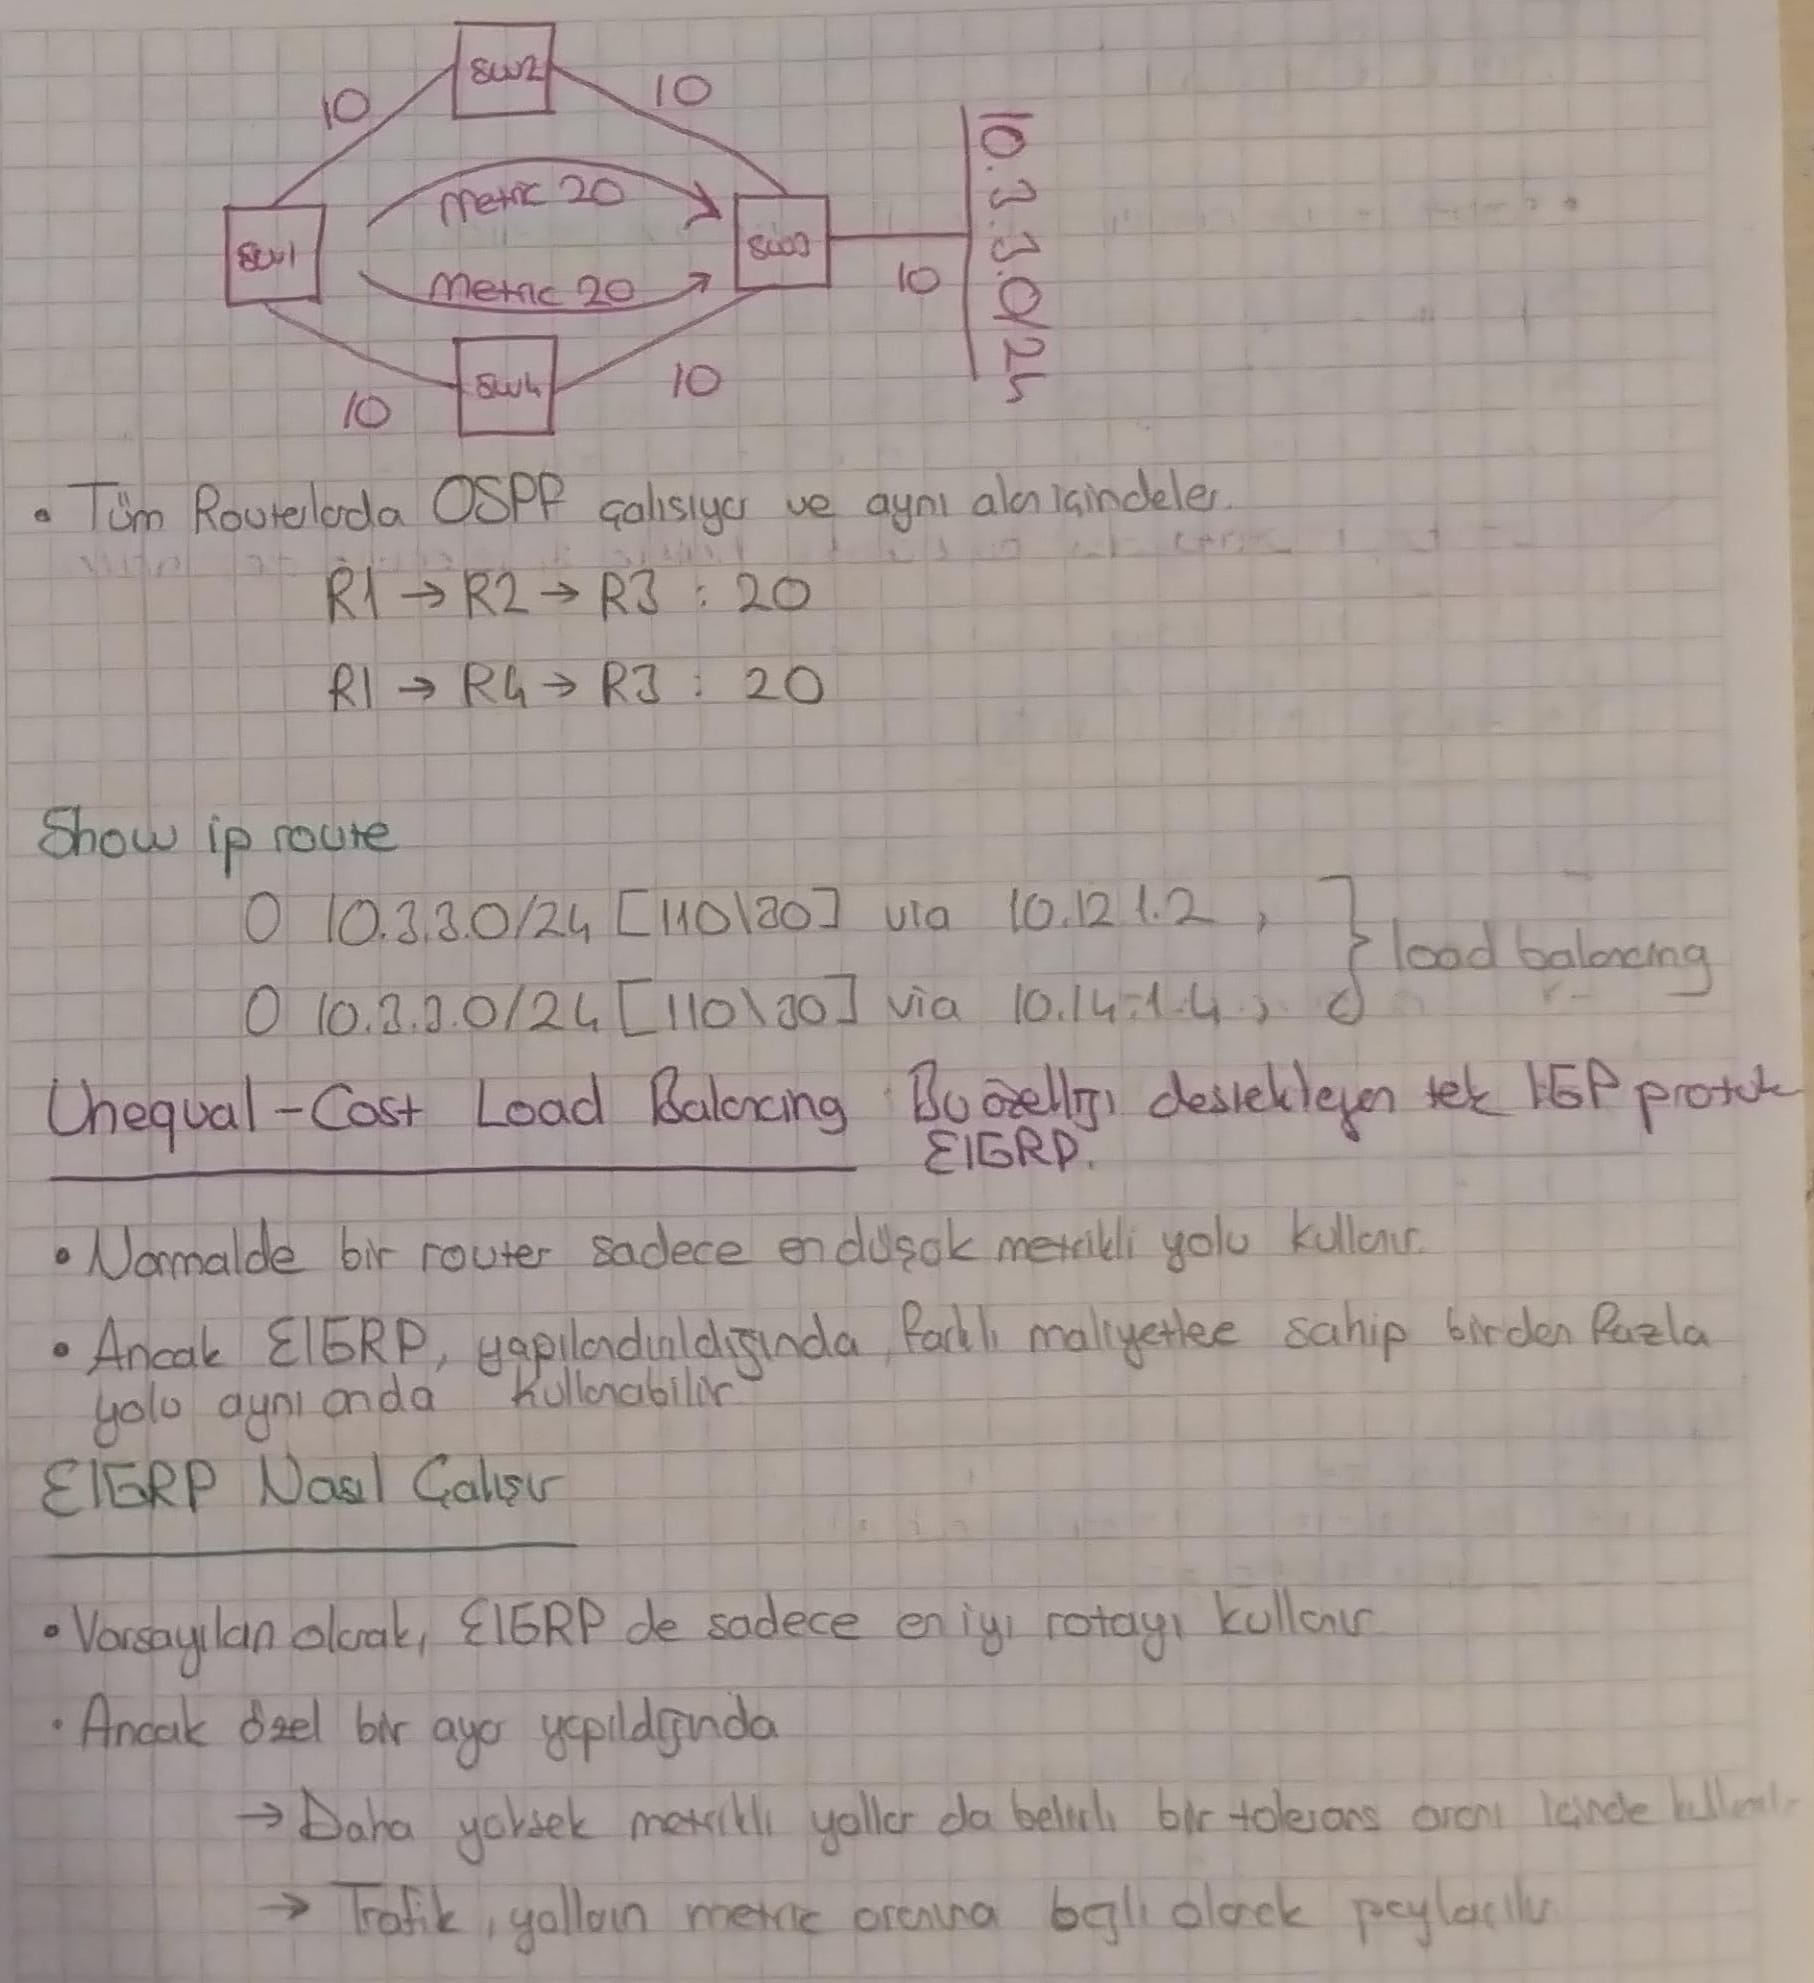 SW2
10
10
Metric 20
SW1
SW3
Metric 20
10
10.3.3.0/24
SW4
10
10
• Tüm Routerlarda OSPF çalısıyor ve aynı alan içindeler.
R1 → R2 → R3 : 20
R1 → R4 → R3 : 20
Show ip route
O 10.3.3.0/24 [110\30] via 10.12.1.2,
load balancing
O 10.3.3.0/24 [110\30] via 10.14.1.4,
Unequal-Cost Load Balancing : Bu özelliği destekleyen tek IGP
EIGRP.
• Normalde bir router sadece en düşük metrikli yolu kullanır.
• Ancak EIGRP, yapılandırıldığında, farklı maliyetlere sahip birden fazla
yolu aynı anda kullanabilir
EIGRP Nasıl Çalışır
• Varsayılan olarak, EIGRP de sadece en iyi rotayı kullanır
• Ancak özel bir ayar yapıldığında
→ Daha yüksek metrikli yollar da belirli bir tolerans oranı içinde
→ Trafik, yolların metric oranına bağlı olarak paylaştırılır